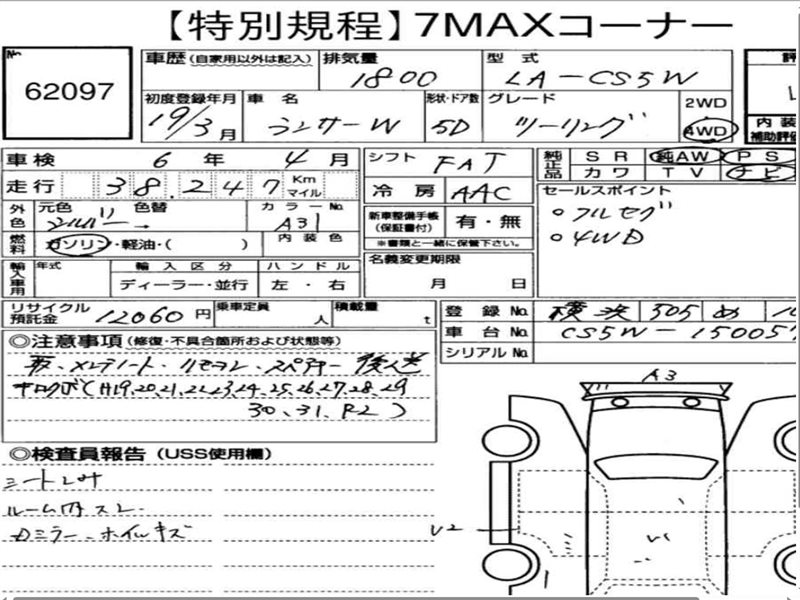 【特別規程】7MAXコーナー
No.
62097
車歴(自家用以外は記入)
排気量
1800
型式
LA-CS5W
初度登録年月
19/3月
車名
ランサーW
形状・ドア数
5D
グレード
ツーリング
2WD
4WD
評
内装
補助評価
車検 6年 4月
走行 38,247 Km マイル
シフト FAT
冷房 AAC
純正品 SR 純AW PS
カワ TV ナビ
外色 元色 シルバー 色替
カラーNo. A31
燃料 ガソリン・軽油・( )
内装色
新車整備手帳
(保証書付)
有・無
※書類と一緒に保管下さい。
セールスポイント
○フルセグ
○4WD
輸入車用 年式 輸入区分 ハンドル
ディーラー・並行 左・右
名義変更期限
月 日
リサイクル
預託金
12060円
乗車定員 人
積載量 t
登録No. 横浜 505 め
車台No. CS5W-15005
シリアルNo.
◎注意事項(修復・不具合箇所および状態等)
取、メンテノート・リモコン・スペアキー 後送
キロクボ(H19,20,21,22,23,24,25,26,27,28,29
30、31、R2)
◎検査員報告(USS使用欄)
シート
ルーム内スレ
ドミラー、ホイルキズ
A3
U2